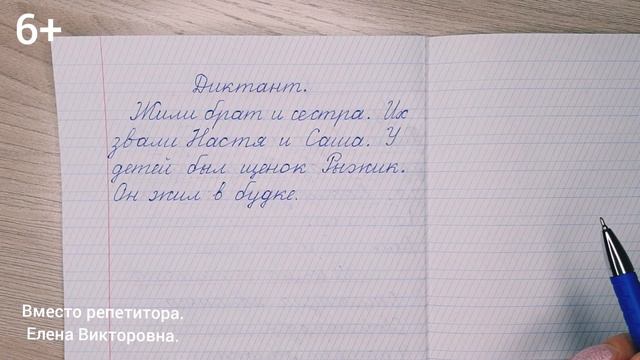 6+
Диктант.
Жили брат и сестра. Их
звали Настя и Саша. У
детей был щенок Рыжик.
Он жил в будке.
Вместо репетитора.
Елена Викторовна.